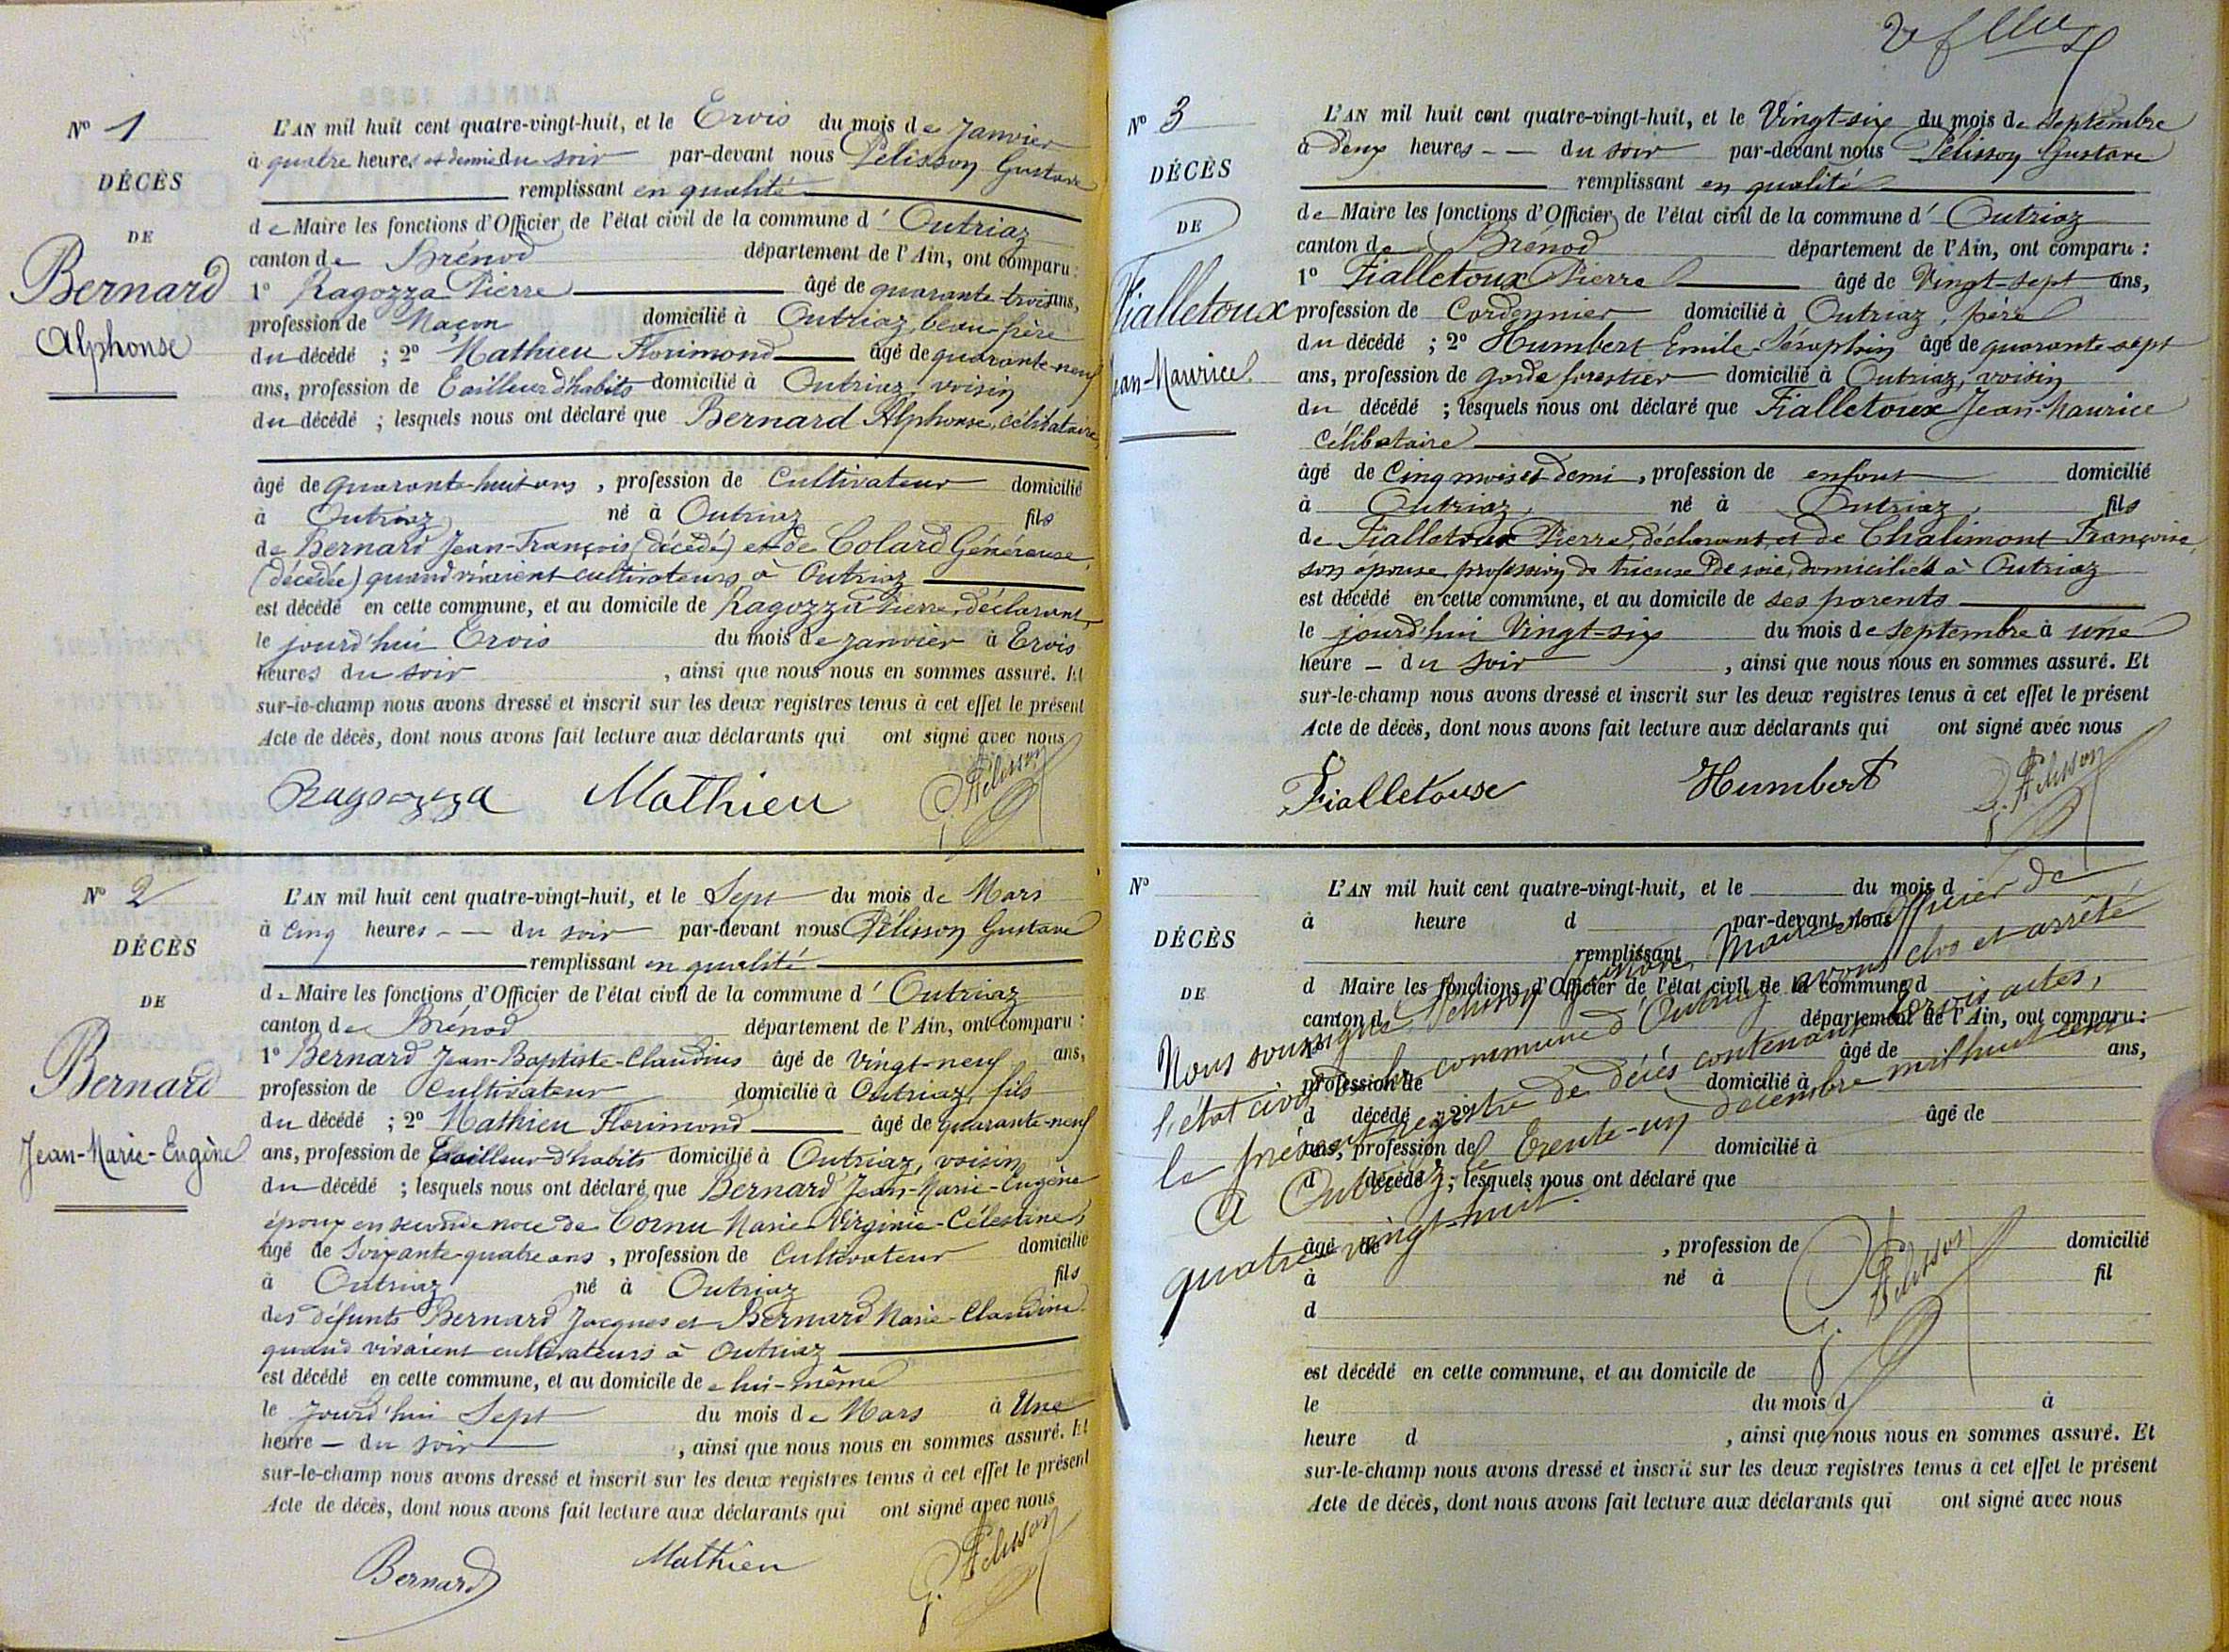 Nº 1
DÉCÈS
DE
Bernard
Alphonse
L'AN mil huit cent quatre-vingt-huit, et le Trois du mois de Janvier
à quatre heures et demie du soir par-devant nous Pélisson Gustave
remplissant en qualité
de Maire les fonctions d'Officier de l'état civil de la commune d'Outriaz
canton de Brénod département de l'Ain, ont comparu :
1º Ragozza Pierre âgé de quarante-trois ans,
profession de Maçon domicilié à Outriaz, beau-frère
du décédé ; 2º Mathieu Florimond âgé de quarante-neuf
ans, profession de Tailleur d'habits domicilié à Outriaz, voisin
du décédé ; lesquels nous ont déclaré que Bernard Alphonse, célibataire,
âgé de quarante-huit ans, profession de Cultivateur domicilié
à Outriaz né à Outriaz fils
de Bernard Jean-François (décédé) et de Colard Généreuse,
(décédée) quand vivaient cultivateurs à Outriaz
est décédé en cette commune, et au domicile de Ragozza Pierre, déclarant,
le jourd'hui Trois du mois de Janvier à Trois
heures du soir, ainsi que nous nous en sommes assuré. Et
sur-le-champ nous avons dressé et inscrit sur les deux registres tenus à cet effet le présent
Acte de décès, dont nous avons fait lecture aux déclarants qui ont signé avec nous
Ragozza Mathieu G. Pélisson
Nº 2
DÉCÈS
DE
Bernard
Jean-Marie-Eugène
L'AN mil huit cent quatre-vingt-huit, et le Sept du mois de Mars
à Cinq heures - - du soir par-devant nous Pélisson Gustave
remplissant en qualité
de Maire les fonctions d'Officier de l'état civil de la commune d'Outriaz
canton de Brénod département de l'Ain, ont comparu :
1º Bernard Jean-Baptiste-Claudius âgé de Vingt-neuf ans,
profession de Cultivateur domicilié à Outriaz, fils
du décédé ; 2º Mathieu Florimond âgé de quarante-neuf
ans, profession de Tailleur d'habits domicilié à Outriaz, voisin
du décédé ; lesquels nous ont déclaré que Bernard Jean-Marie-Eugène
époux en seconde noce de Cornu Marie-Virginie-Célestine,
âgé de Soixante-quatre ans, profession de Cultivateur domicilié
à Outriaz né à Outriaz fils
des défunts Bernard Jacques et Bernard Marie-Claudine
quand vivaient cultivateurs à Outriaz
est décédé en cette commune, et au domicile de lui-même
le jourd'hui Sept du mois de Mars à Une
heure - du soir, ainsi que nous nous en sommes assuré. Et
sur-le-champ nous avons dressé et inscrit sur les deux registres tenus à cet effet le présent
Acte de décès, dont nous avons fait lecture aux déclarants qui ont signé avec nous
Bernard Mathieu G. Pélisson
Nº 3
DÉCÈS
DE
Fialletoux
Jean-Maurice
L'AN mil huit cent quatre-vingt-huit, et le Vingt-six du mois de Septembre
à deux heures - - du soir par-devant nous Pélisson Gustave
remplissant en qualité
de Maire les fonctions d'Officier de l'état civil de la commune d'Outriaz
canton de Brénod département de l'Ain, ont comparu :
1º Fialletoux Pierre âgé de Vingt-sept ans,
profession de Cordonnier domicilié à Outriaz, père
du décédé ; 2º Humbert Emile-Séraphin âgé de quarante-sept
ans, profession de garde forestier domicilié à Outriaz, voisin
du décédé ; lesquels nous ont déclaré que Fialletoux Jean-Maurice
célibataire
âgé de Cinq mois et demi, profession de enfant domicilié
à Outriaz, né à Outriaz, fils
de Fialletoux Pierre, déclarant et de Chalimont Françoise,
son épouse profession de trieuse de soie, domiciliés à Outriaz
est décédé en cette commune, et au domicile de ses parents
le jourd'hui Vingt-six du mois de septembre à une
heure - du soir, ainsi que nous nous en sommes assuré. Et
sur-le-champ nous avons dressé et inscrit sur les deux registres tenus à cet effet le présent
Acte de décès, dont nous avons fait lecture aux déclarants qui ont signé avec nous
Fialletouse Humbert G. Pélisson
Nº
DÉCÈS
DE
L'AN mil huit cent quatre-vingt-huit, et le du mois d
à heure d par-devant nous
remplissant
d Maire les fonctions d'Officier de l'état civil de la commune d
canton d département de l'Ain, ont comparu :
1º âgé de ans,
profession de domicilié à
d décédé ; 2º âgé de
ans, profession de domicilié à
d décédé ; lesquels nous ont déclaré que
âgé de , profession de domicilié
à né à fil
d
est décédé en cette commune, et au domicile de
le du mois d à
heure d , ainsi que nous nous en sommes assuré. Et
sur-le-champ nous avons dressé et inscrit sur les deux registres tenus à cet effet le présent
Acte de décès, dont nous avons fait lecture aux déclarants qui ont signé avec nous
Nous soussigné Pélisson Gustave, Maire et Officier de
l'état civil de la commune d'Outriaz avons clos et arrêté
le présent registre de décès contenant trois actes,
A Outriaz, le Trente-un décembre mil huit cent
quatre-vingt-huit.
G. Pélisson